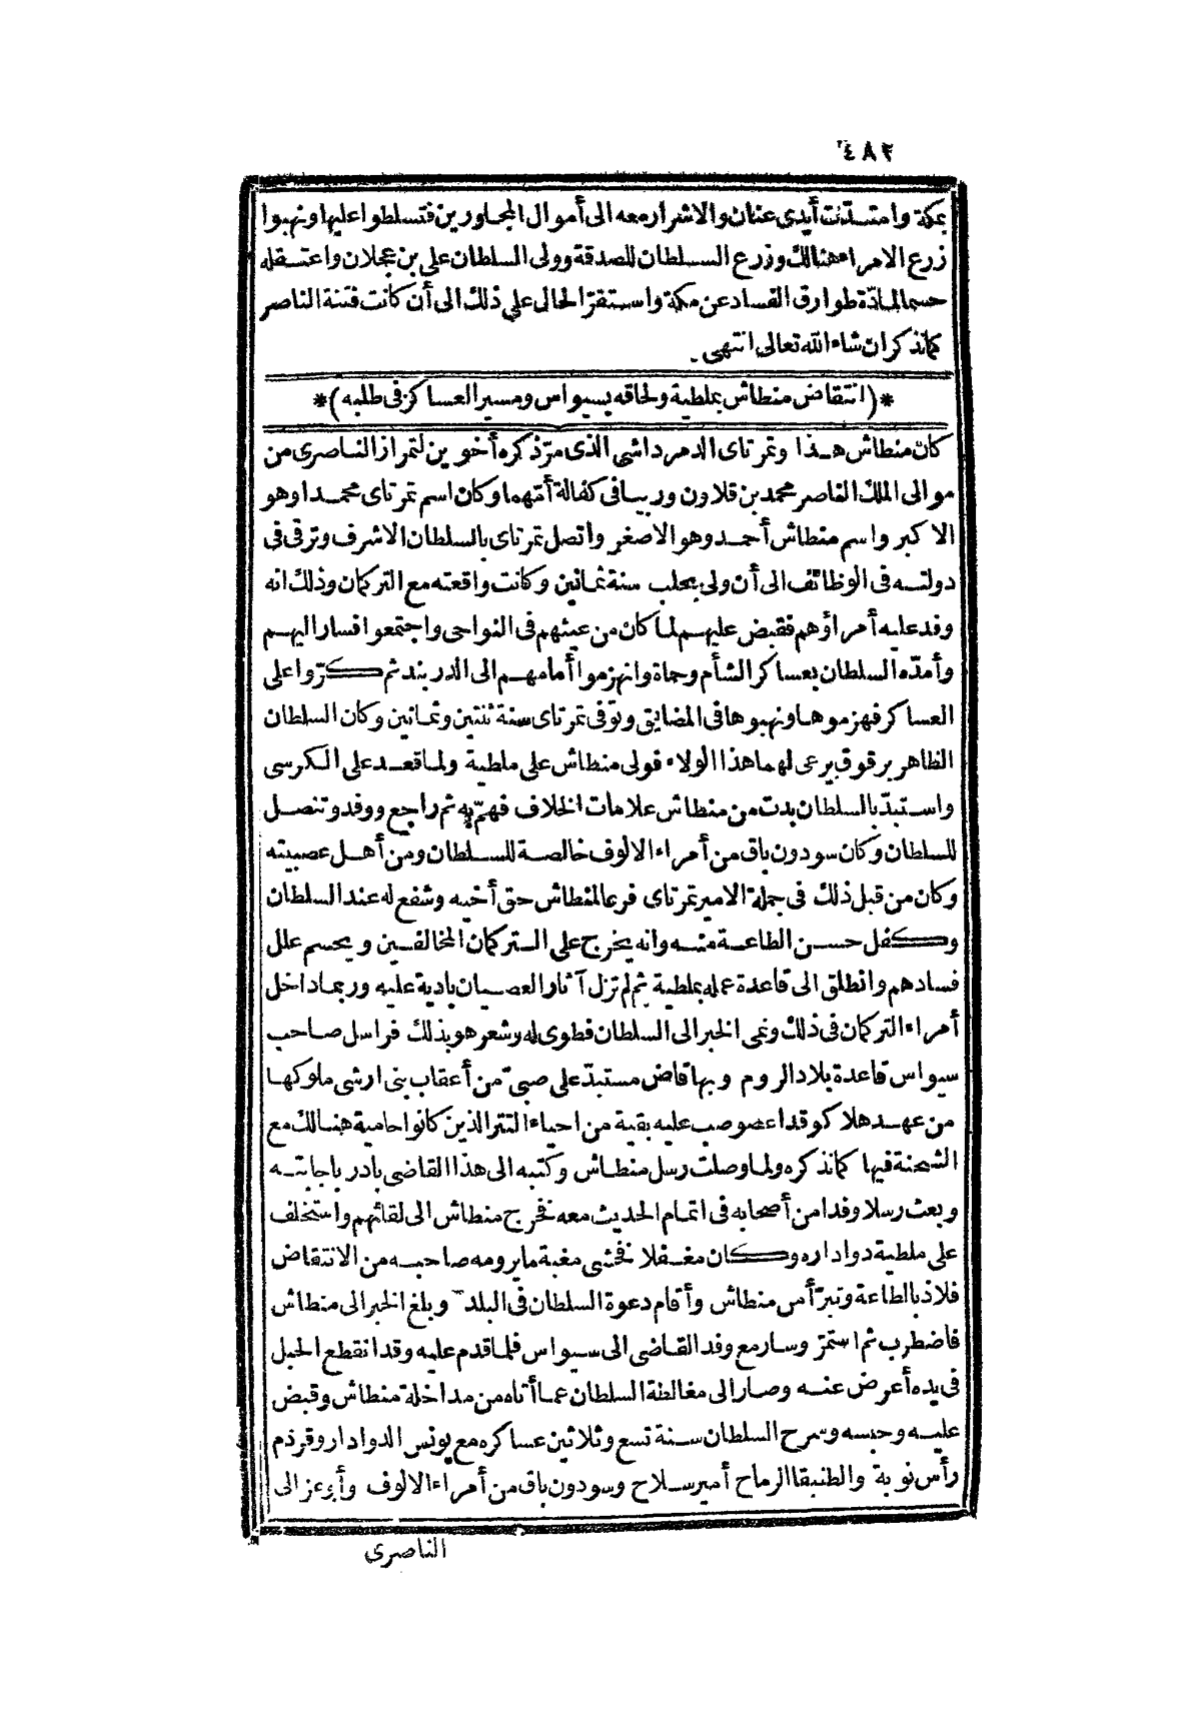 ٤٨٢
بمكة وامتدّت أيدى عنان والاشرار معه الى أموال المجاورين فتسلطوا عليها ونهبوا
زرع الامراء هنالك وزرع السلطان للصدقة وولى السلطان على بن عجلان واعتقله
حسما لمادّة طوارق الفساد عن مكة واستقرّ الحال على ذلك الى أن كانت فتنة الناصر
كما نذكر ان شاء الله تعالى انتهى.
*(انتقاض منطاش بملطية ولحاقه بسيواس ومسير العساكر فى طلبه)*
كان منطاش هذا وتمرتاى الدمرداشى الذى مرّ ذكره أخوين لتمراز الناصرى من
موالى الملك الناصر محمد بن قلاون وربيا فى كفالة أمّهما وكان اسم تمرتاى محمدا وهو
الاكبر واسم منطاش أحمد وهو الاصغر واتصل تمرتاى بالسلطان الاشرف وترقى فى
دولته فى الوظائف الى أن ولى بحلب سنة ثمانين وكانت واقعته مع التركمان وذلك انه
وفد عليه أمراؤهم فقبض عليهم لما كان من عيثهم فى النواحى واجتمعوا فسار اليهم
وأمدّه السلطان بعساكر الشأم وحماة وانهزموا أمامهم الى الدربند ثم كرّوا على
العساكر فهزموها ونهبوها فى المضايق وتوفى تمرتاى سنة ثنتين وثمانين وكان السلطان
الظاهر برقوق يرعى لهما هذا الولاء فولى منطاش على ملطية ولما قعد على الكرسى
واستبدّ بالسلطان بدت من منطاش علامات الخلاف فهمّ به ثم راجع ووفد وتنصل
للسلطان وكان سودون باق من أمراء الالوف خالصة للسلطان ومن أهل عصبيته
وكان من قبل ذلك فى جملة الامير تمرتاى فرعا لمنطاش حق أخيه وشفع له عند السلطان
وكفل حسن الطاعة منه وانه يخرج على التركمان المخالفين ويحسم علل
فسادهم وانطلق الى قاعدة عمله بملطية ثم لم تزل آثار العصيان بادية عليه وربما داخل
أمراء التركمان فى ذلك ونمى الخبر الى السلطان فطوى له وشعر هو بذلك فراسل صاحب
سيواس قاعدة بلاد الروم وبها قاض مستبدّ على صبىّ من أعقاب بنى ارشى ملوكها
من عهد هلاكو قد اعصوصب عليه بقية من احياء التتر الذين كانوا حامية هنالك مع
الشحنة فيها كما نذكره ولما وصلت رسل منطاش وكتبه الى هذا القاضى بادر باجابته
وبعث رسلا وفدا من أصحابه فى اتمام الحديث معه فخرج منطاش الى لقائهم واستخلف
على ملطية دواداره وكان مغفلا فخشى مغبة ما يرومه صاحبه من الانتقاض
فلاذ بالطاعة وتبرّأ من منطاش وأقام دعوة السلطان فى البلد وبلغ الخبر الى منطاش
فاضطرب ثم استمرّ وسار مع وفد القاضى الى سيواس فلما قدم عليه وقد انقطع الحبل
فى يده أعرض عنه وصار الى مغالطة السلطان عما أتاه من مداخلة منطاش وقبض
عليه وحبسه وسرح السلطان سنة تسع وثلاثين عساكره مع يونس الدوادار وقردم
رأس نوبة والطنبقا الرماح أمير سلاح وسودون باق من أمراء الالوف وأوعز الى
الناصرى